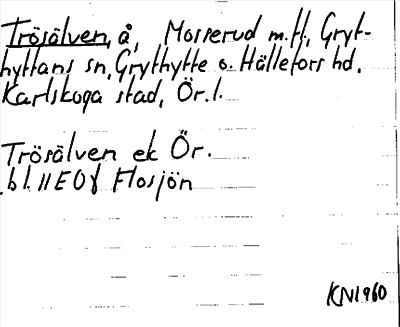 Trösälven, å, Mosserud m.fl., Gryt-
hyttans sn, Grythytte o. Hällefors hd,
Karlskoga stad, Ör.l.
Trösälven ek Ör.
bl. 11E0f Flosjön
KN1960